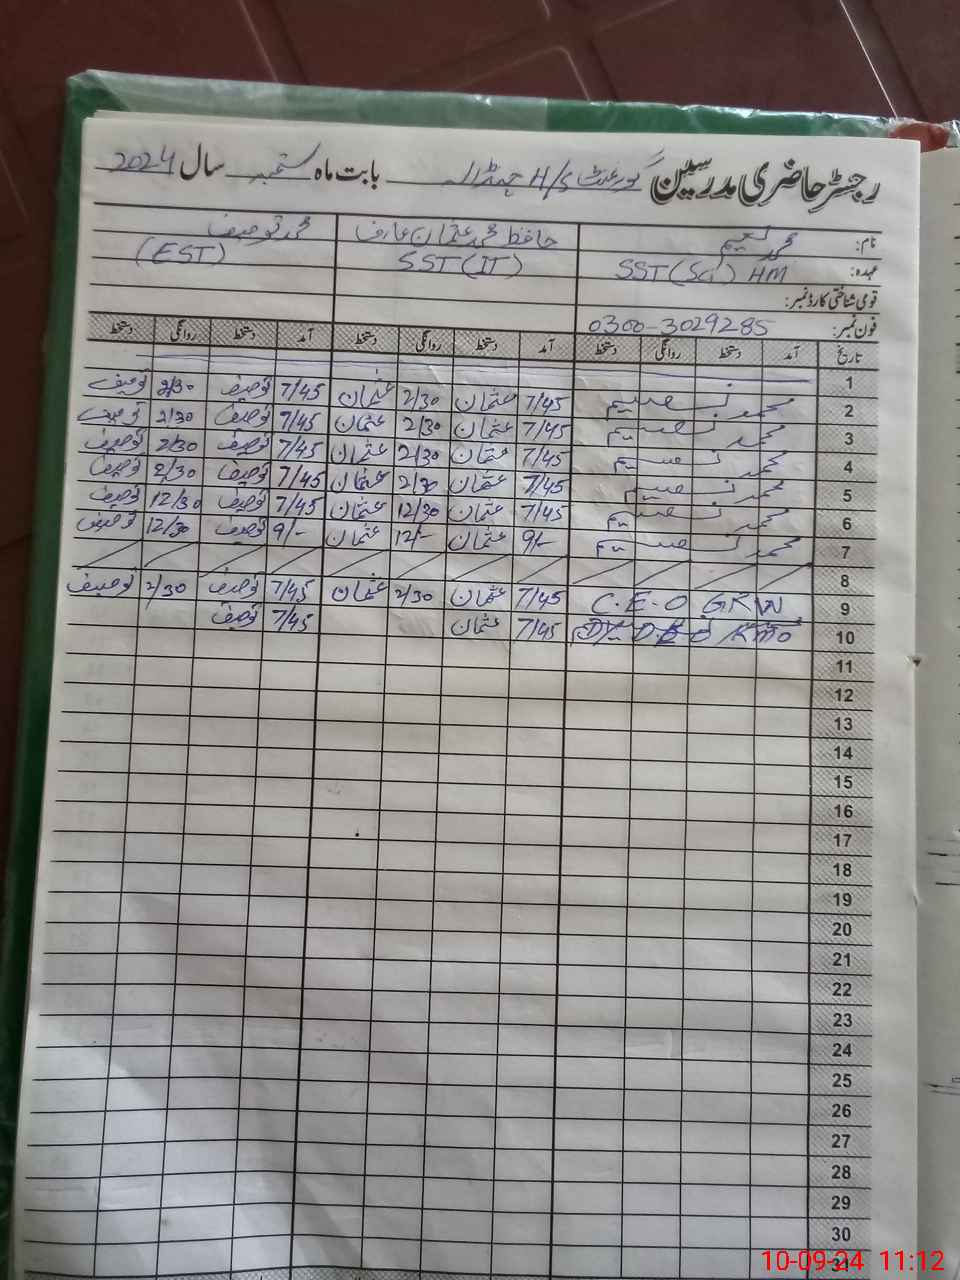 رجسٹر حاضری مدرسین گورنمنٹ H/S بابت ماہ ستمبر سال 2024
نام: محمد نعیم حافظ محمد عثمان عارف محمد توصیف
عہدہ: SST(Sci) HM SST(IT) (EST)
قومی شناختی کارڈ نمبر:
فون نمبر: 0300-3029285
تاریخ آمد دستخط روانگی دستخط آمد دستخط روانگی دستخط آمد دستخط روانگی دستخط
1
2 محمد نعیم 7/45 عثمان 2/30 عثمان 7/45 توصیف 2/30 توصیف
3 محمد نعیم 7/45 عثمان 2/30 عثمان 7/45 توصیف 2/30 توصیف
4 محمد نعیم 7/45 عثمان 2/30 عثمان 7/45 توصیف 2/30 توصیف
5 محمد نعیم 7/45 عثمان 2/30 عثمان 7/45 توصیف 2/30 توصیف
6 محمد نعیم 7/45 عثمان 12/30 عثمان 7/45 توصیف 12/30 توصیف
7 محمد نعیم 9/- عثمان 12/- عثمان 9/- توصیف 12/30 توصیف
8
9 C.E.O GRW 7/45 عثمان 2/30 عثمان 7/45 توصیف 2/30 توصیف
10 7/45 عثمان 7/45 توصیف
11
12
13
14
15
16
17
18
19
20
21
22
23
24
25
26
27
28
29
30
31
10-09-24 11:12